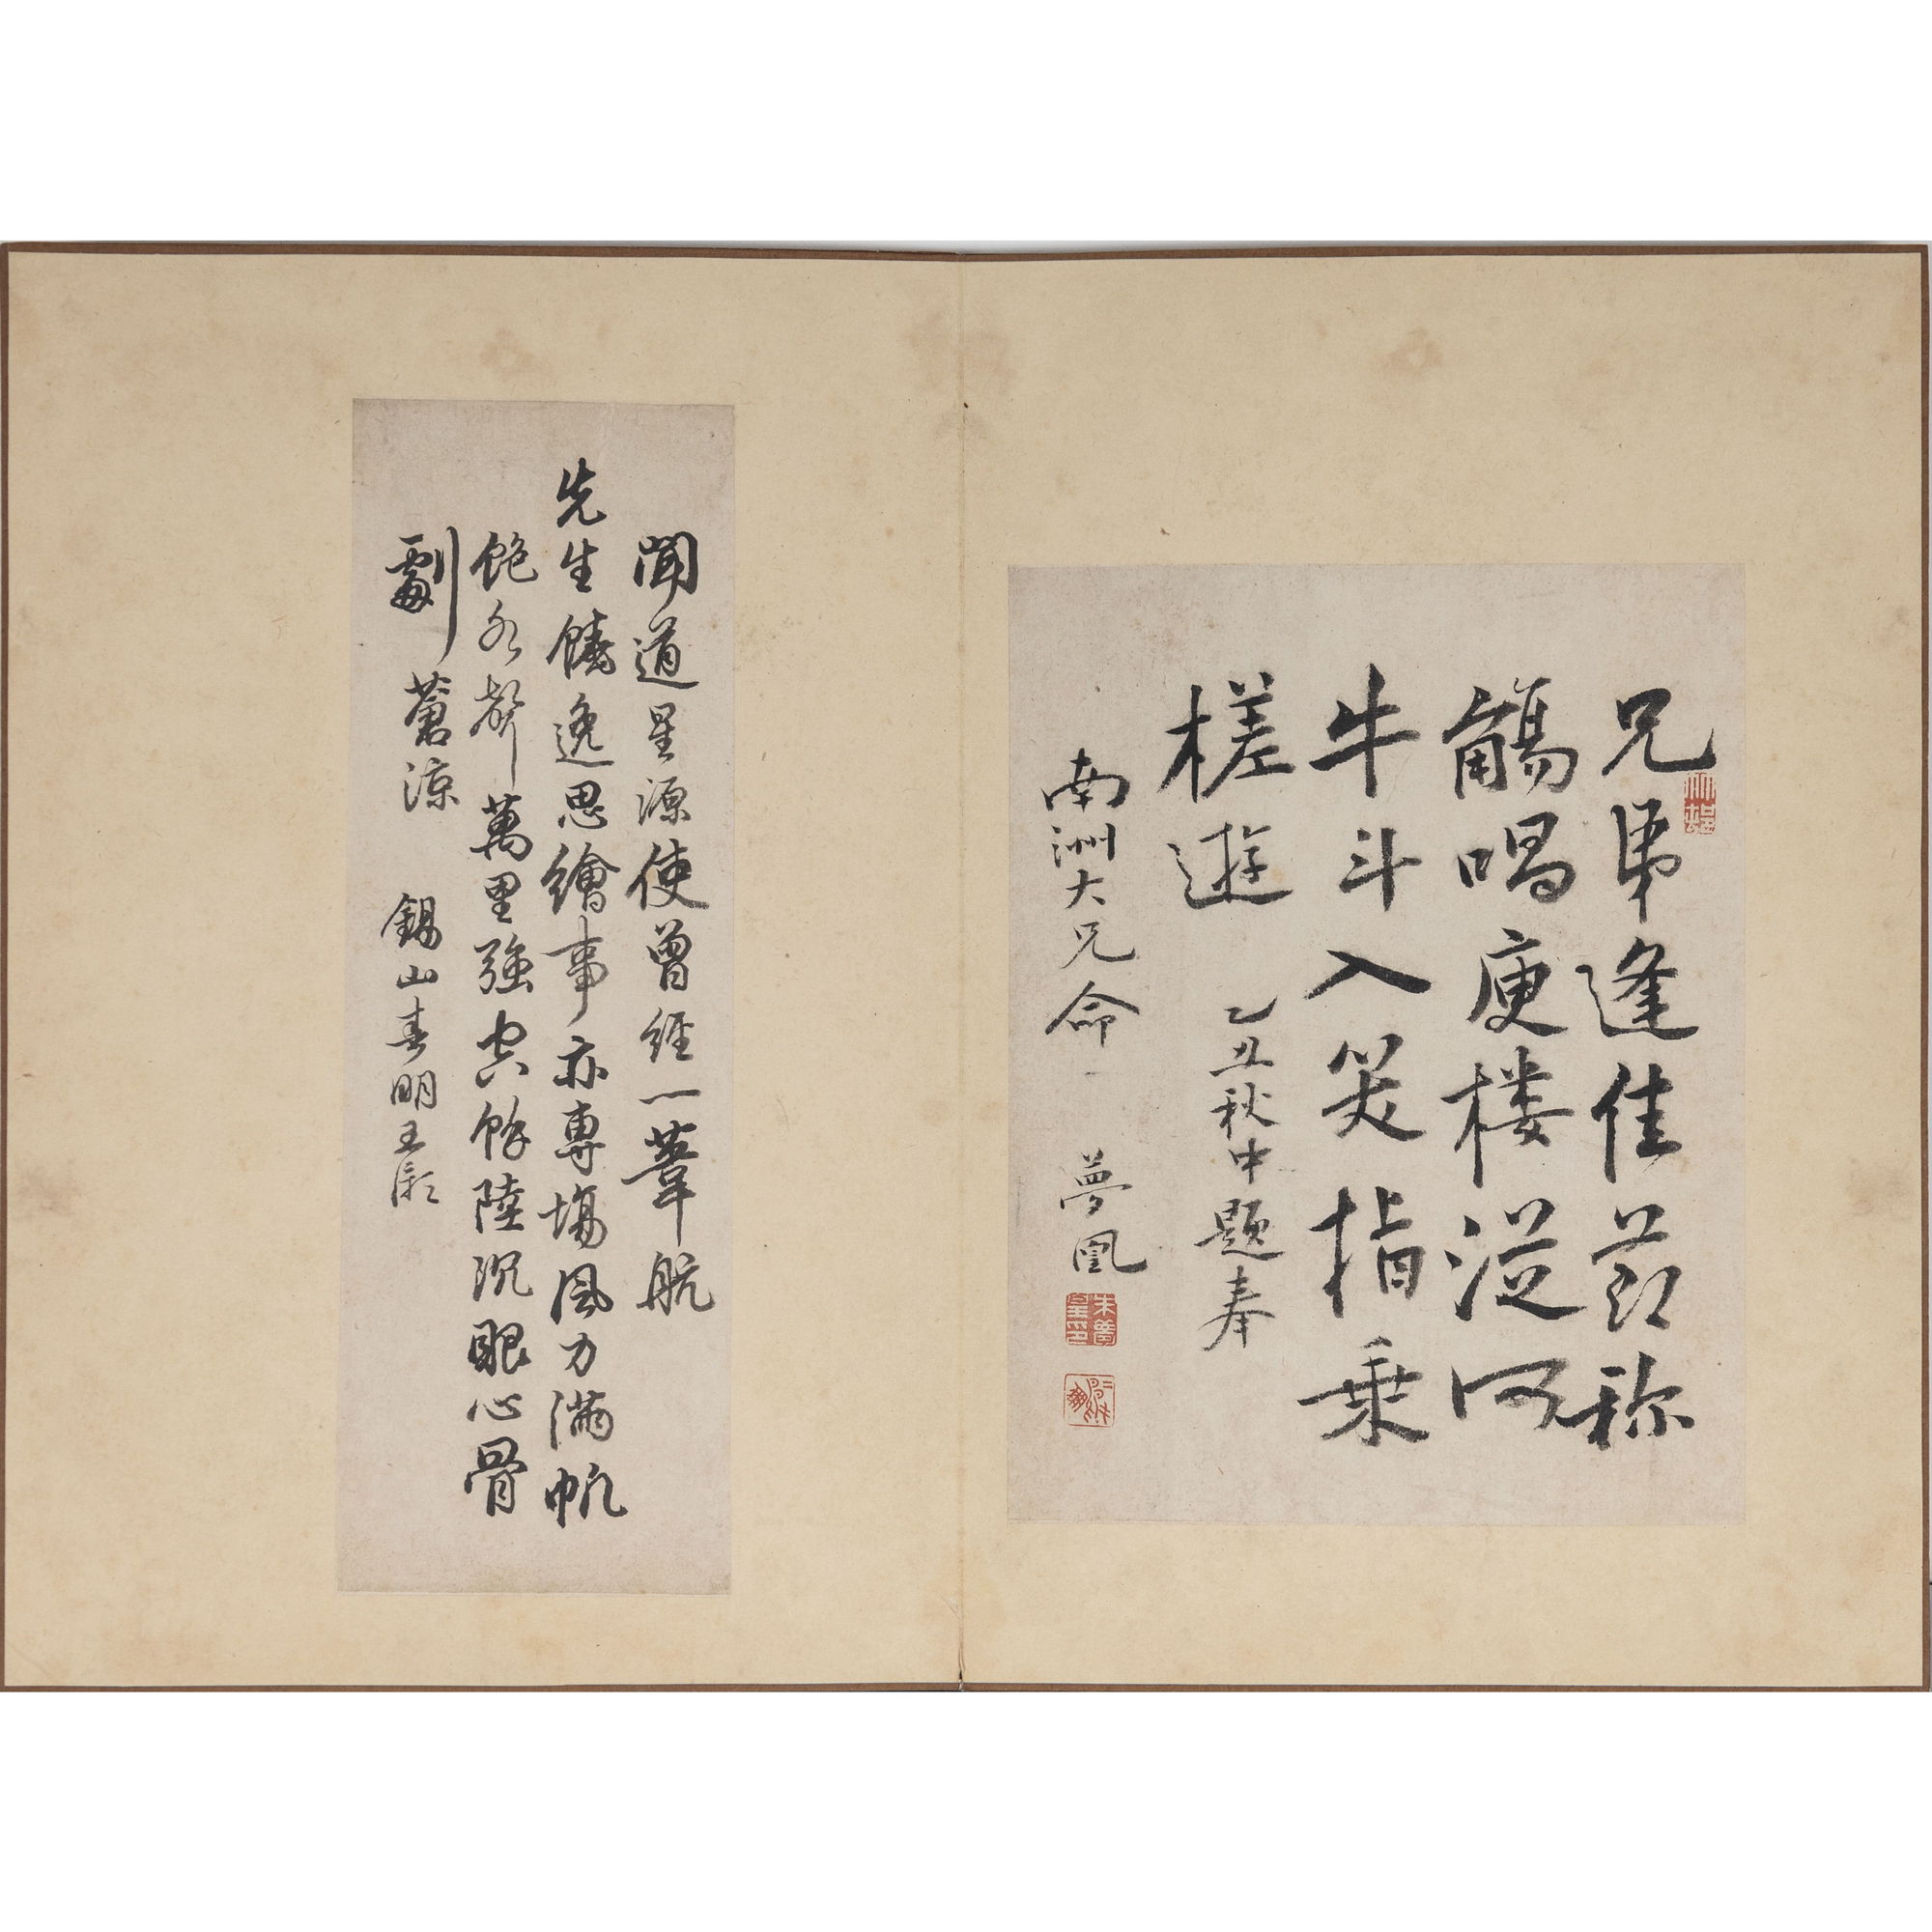 兄弟逢佳節称
觴唱庾楼從河
牛斗入笑指乗
槎遊
乙丑秋中題奉
南洲大兄命
夢凰
聞道星源使曾經一葦航
先生饒逸思繪事亦專場風力滿帆
飽水聲萬里強它餘陸沉眼心骨
劚蒼涼
錫山春明王